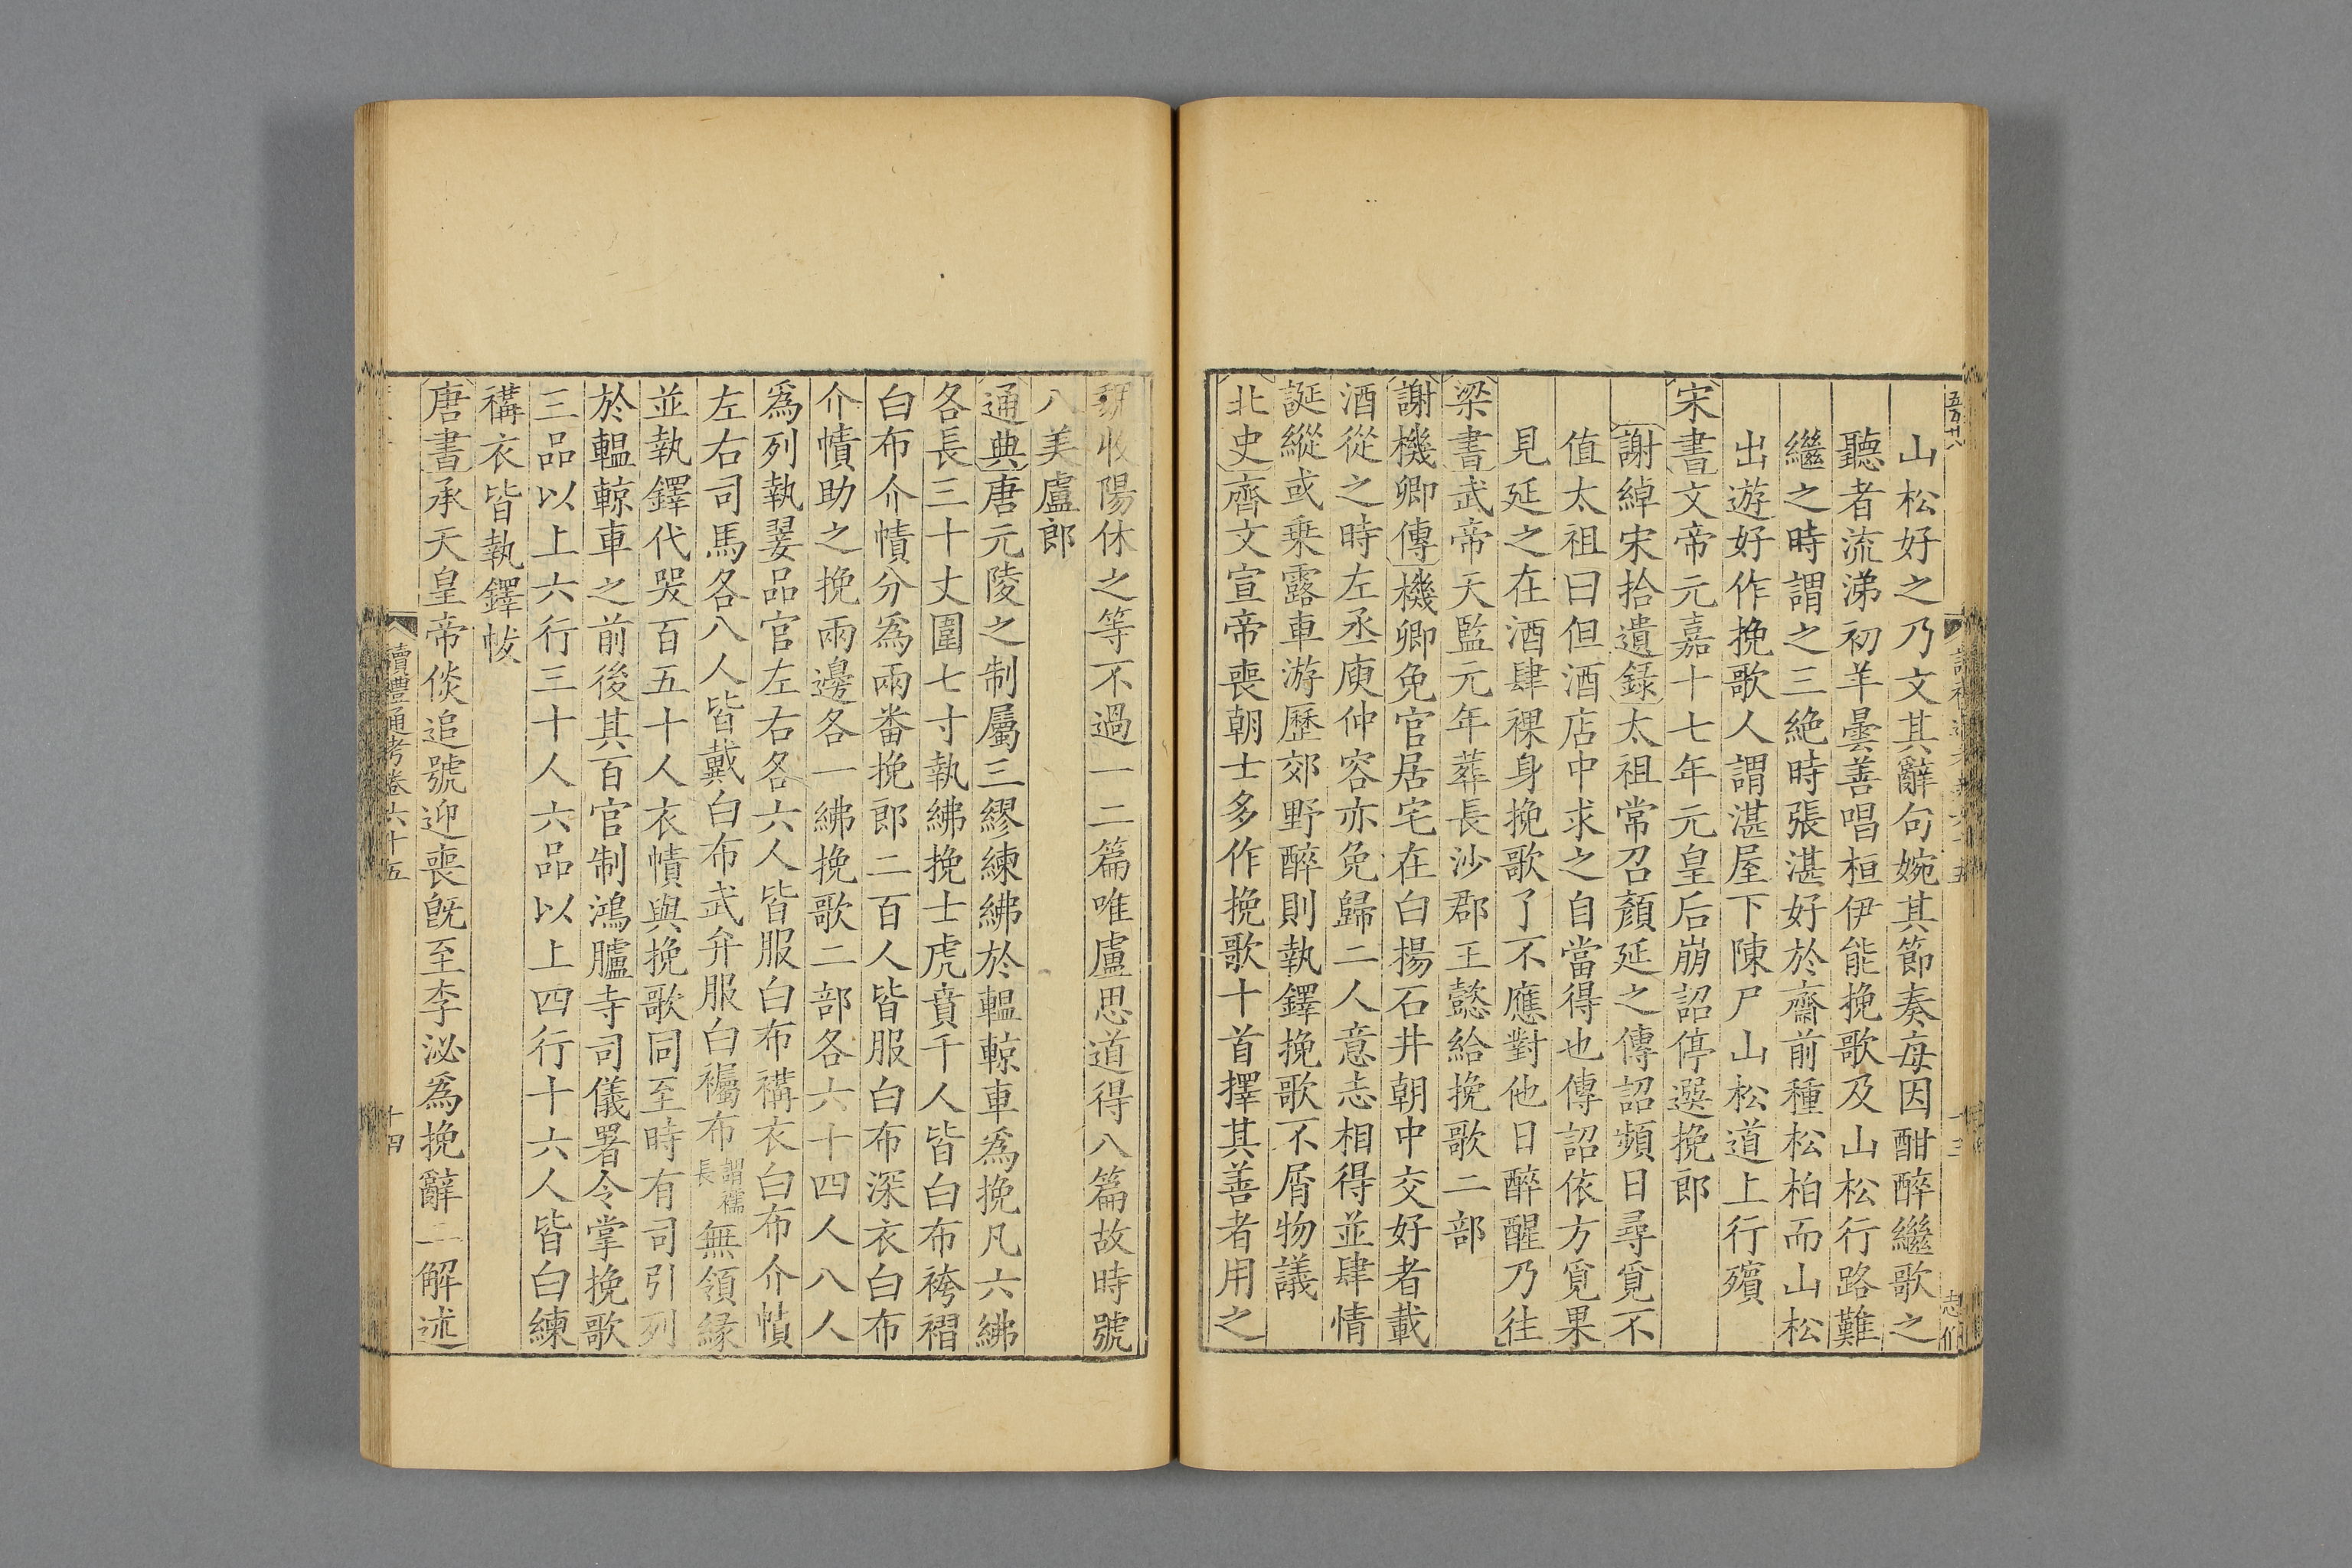 山松好之乃文其辭句婉其節奏每因酣醉繼歌之
聽者流涕初羊曇善唱桓伊能挽歌及山松行路難
繼之時謂之三絶時張湛好於齋前種松柏而山松
出遊好作挽歌人謂湛屋下陳尸山松道上行殯
宋書文帝元嘉十七年元皇后崩詔停選挽郎
謝綽宋拾遺錄太祖常召顏延之傳詔頻日尋覓不
值太祖曰但酒店中求之自當得也傳詔依方覓果
見延之在酒肆裸身挽歌了不應對他日醉醒乃往
梁書武帝天監元年葬長沙郡王懿給挽歌二部
謝機卿傳機卿免官居宅在白揚石井朝中交好者載
酒從之時左丞庾仲容亦免歸二人意志相得並肆情
誕縱或乗露車游歷郊野醉則執鐸挽歌不屑物議
北史齊文宣帝喪朝士多作挽歌十首擇其善者用之
魏收陽休之等不過一二篇唯盧思道得八篇故時號
八美盧郎
通典唐元陵之制屬三繆練紼於轀輬車爲挽凡六紼
各長三十丈圍七寸執紼挽士虎賁千人皆白布袴褶
白布介幘分爲兩番挽郎二百人皆服白布深衣白布
介幘助之挽兩邊各一紼挽歌二部各六十四人八人
爲列執翣品官左右各六人皆服白布褠衣白布介幘
左右司馬各八人皆戴白布武弁服白襹布謂襦長無領緣
並執鐸代哭百五十人衣幘與挽歌同至時有司引列
於轀輬車之前後其百官制鴻臚寺司儀署令掌挽歌
三品以上六行三十人六品以上四行十六人皆白練
褠衣皆執鐸帗
唐書承天皇帝倓追號迎喪旣至李泌爲挽辭二解述
讀禮通考卷六十五
十四